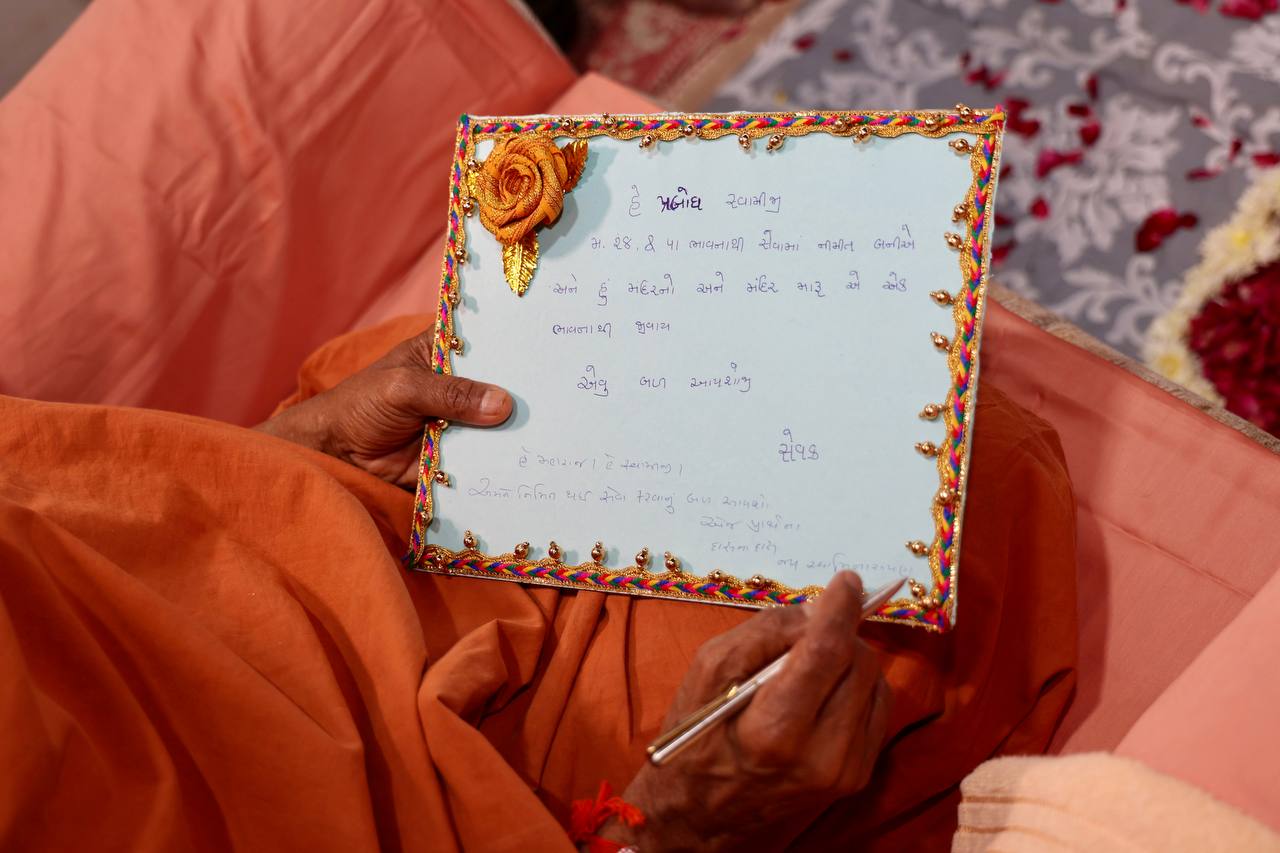 હે પ્રબોધ સ્વામીજી
મ. ૨૪. & ૫૧ ભાવનાથી સેવામાં નીમીત બનીએ
અને હું મંદિરનો અને મંદિર મારૂ એ એક
ભાવનાથી જીવાય
એવુ બળ આપશોજી
સેવક
હે મહારાજ ! હે સ્વામીજી !
અમને નિમિત થઈ સેવા કરવાનું બળ આપશો.
એજ પ્રાર્થના
દાસના દાસ
જય સ્વામિનારાયણ